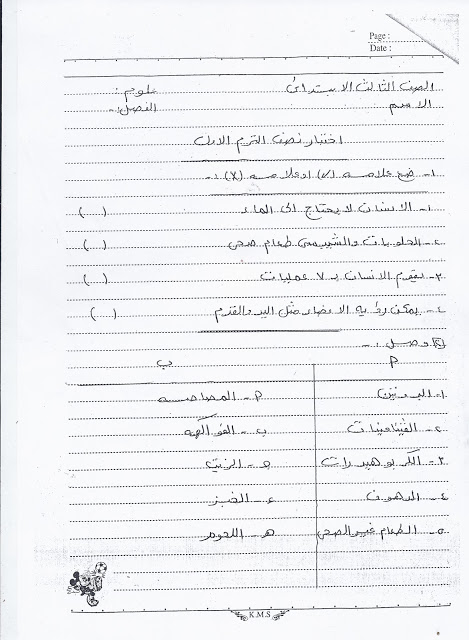 Page :
Date :
الصف الثالث الابتدائى علوم :
الاسم : الفصل :-
اختبار نصف الترم الاول
١- ضع علامه (√) او علامه (X) :-
١- الانسان لا يحتاج الى الماء ( )
٢- الحلويات والشيبسى طعام صحى ( )
٣- يقوم الانسان بـ ٧ عمليات ( )
٤- يمكن رؤيه الاعضاء مثل اليد والقدم ( )
٢) وصل :-
أ ب
١- البروتين أ- المصاصه
٢- الفيتامينات ب- الفواكهه
٣- الكربوهيدرات ج- الزيت
٤- الدهون د- الخبز
٥- الطعام غير الصحى هـ- اللحوم
K.M.S